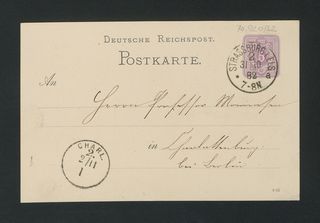 DEUTSCHE REICHSPOST.
POSTKARTE.
STRASSBURG i. ELS
31 10
82 a
7-8N.
An
Herrn Professor Mommsen
in Charlottenburg
bei Berlin
CHARL.
2
11
1